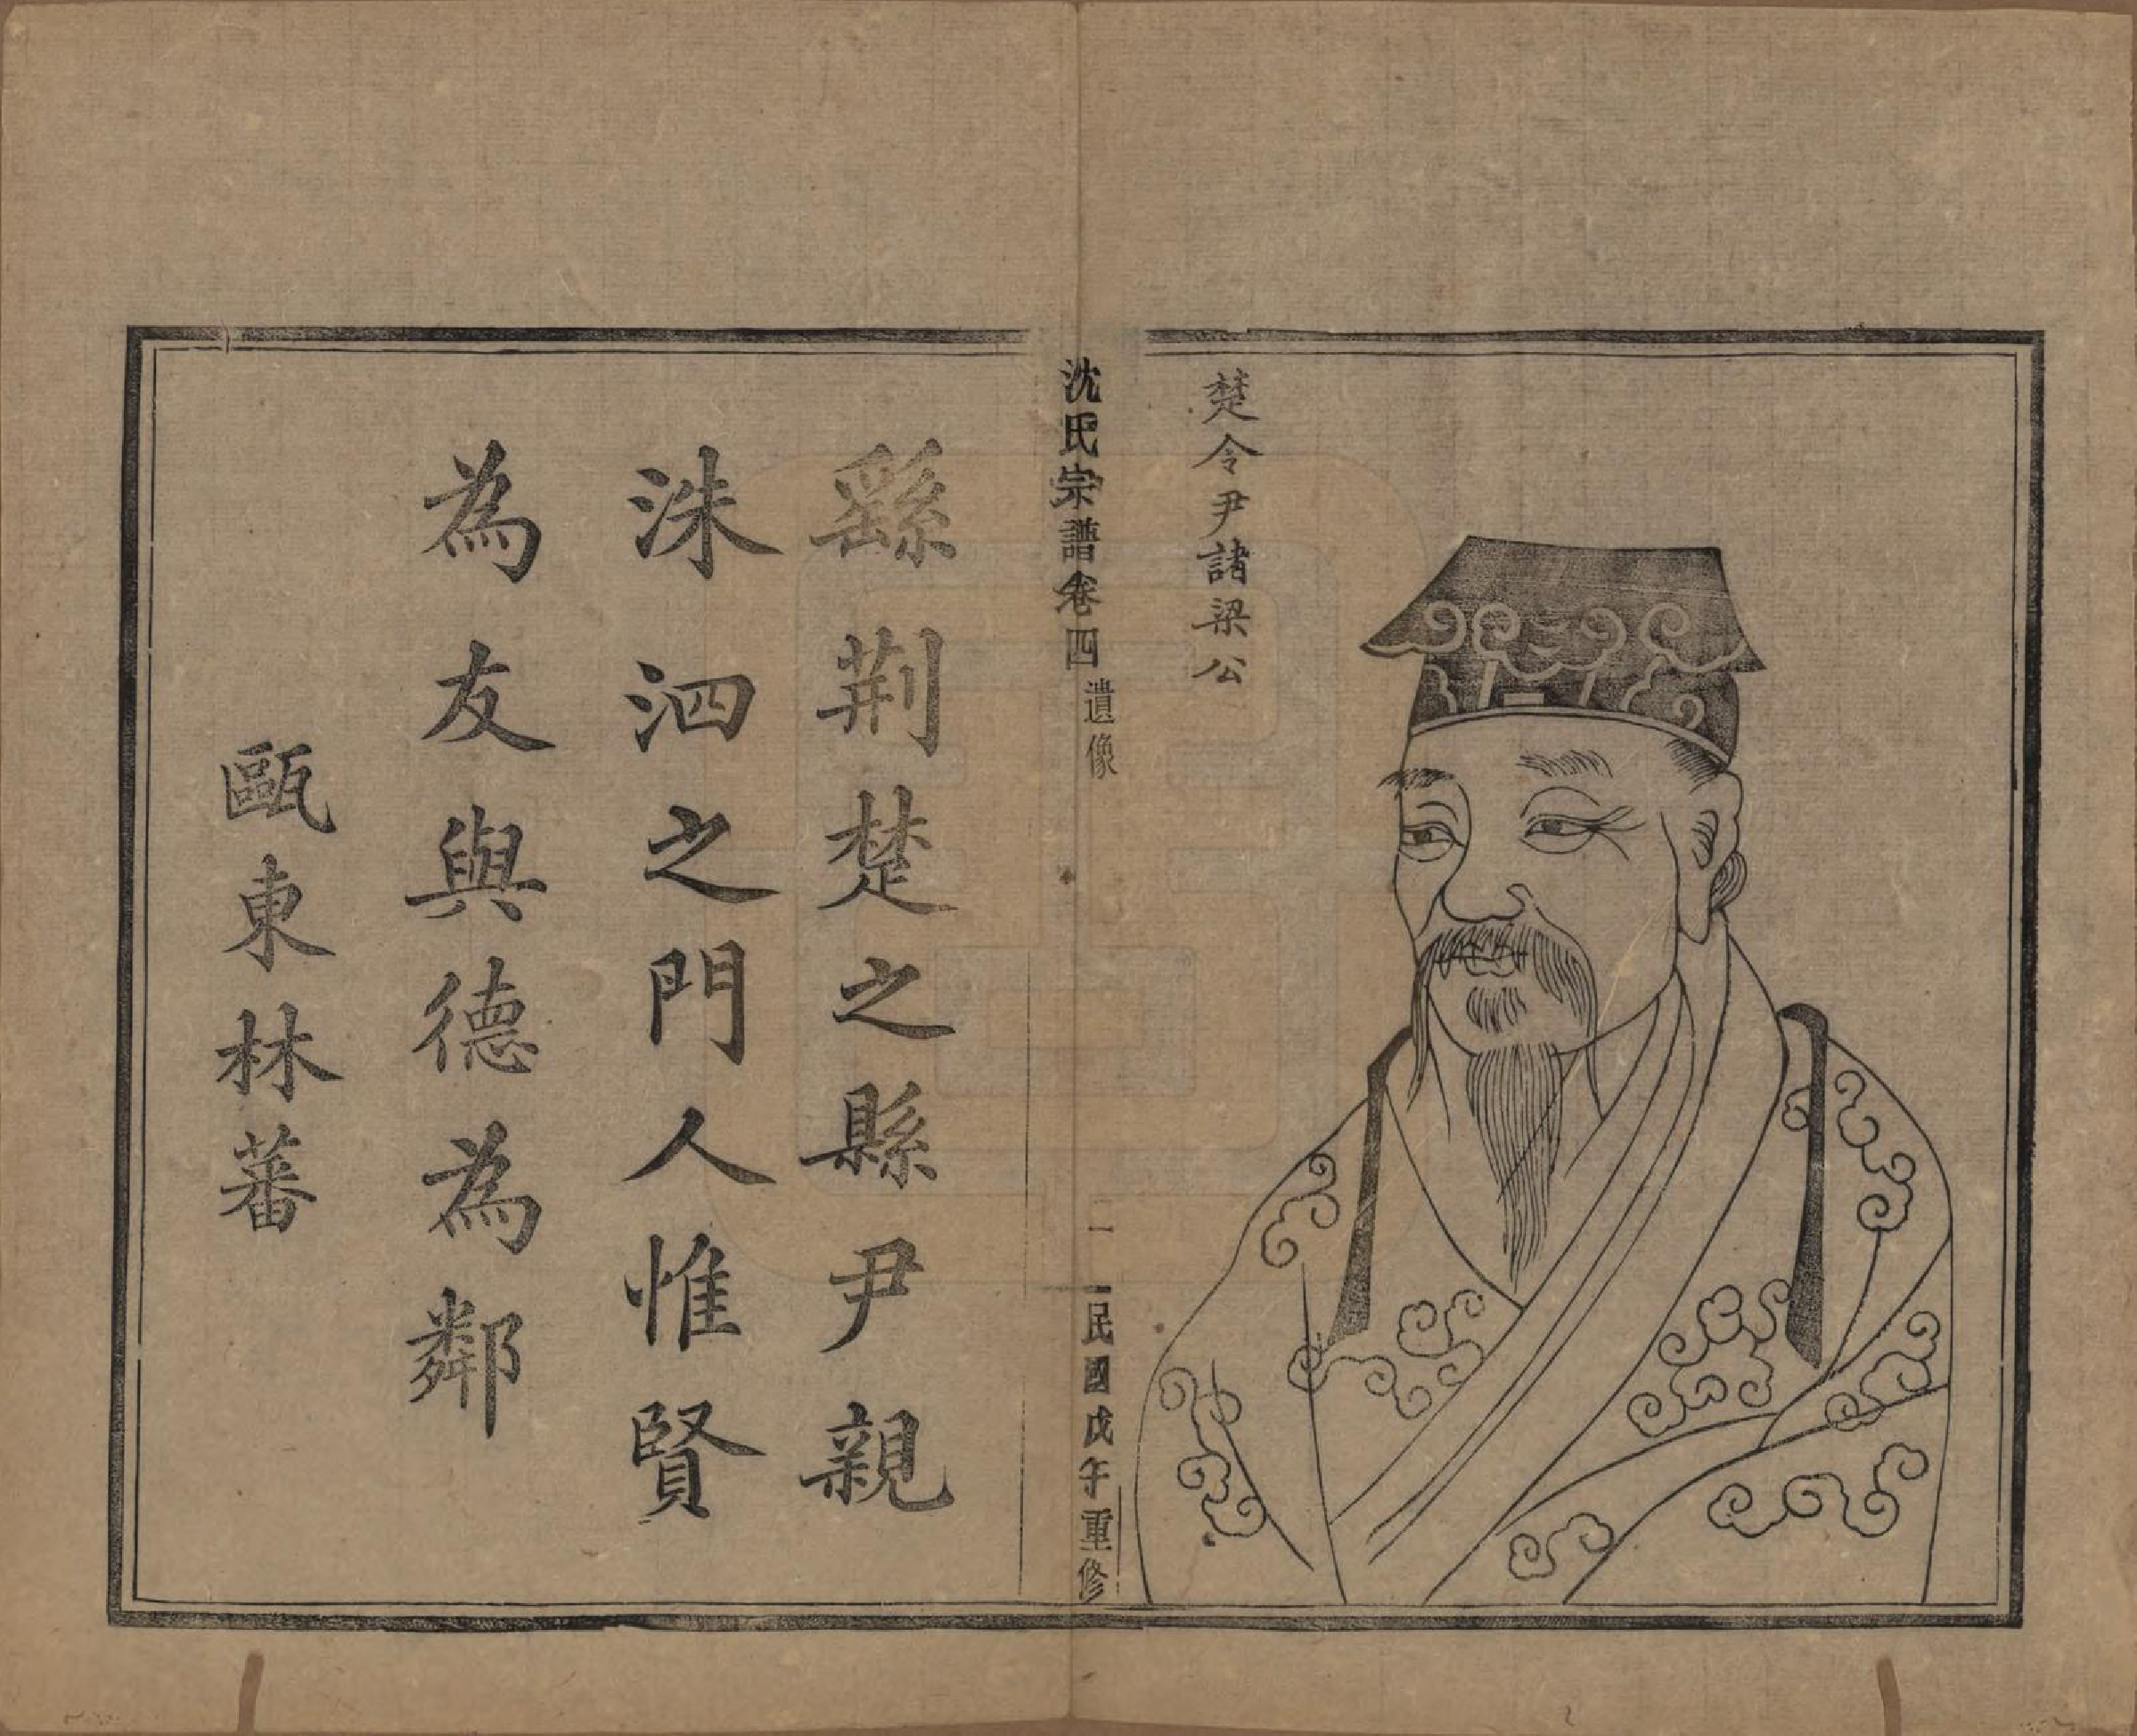 楚令尹諸梁公
沈氏宗譜卷四
遺像
二
民國戊午重修
繇荆楚之縣尹親
洙泗之門人惟賢
為友與德為鄰
甌東林蕃